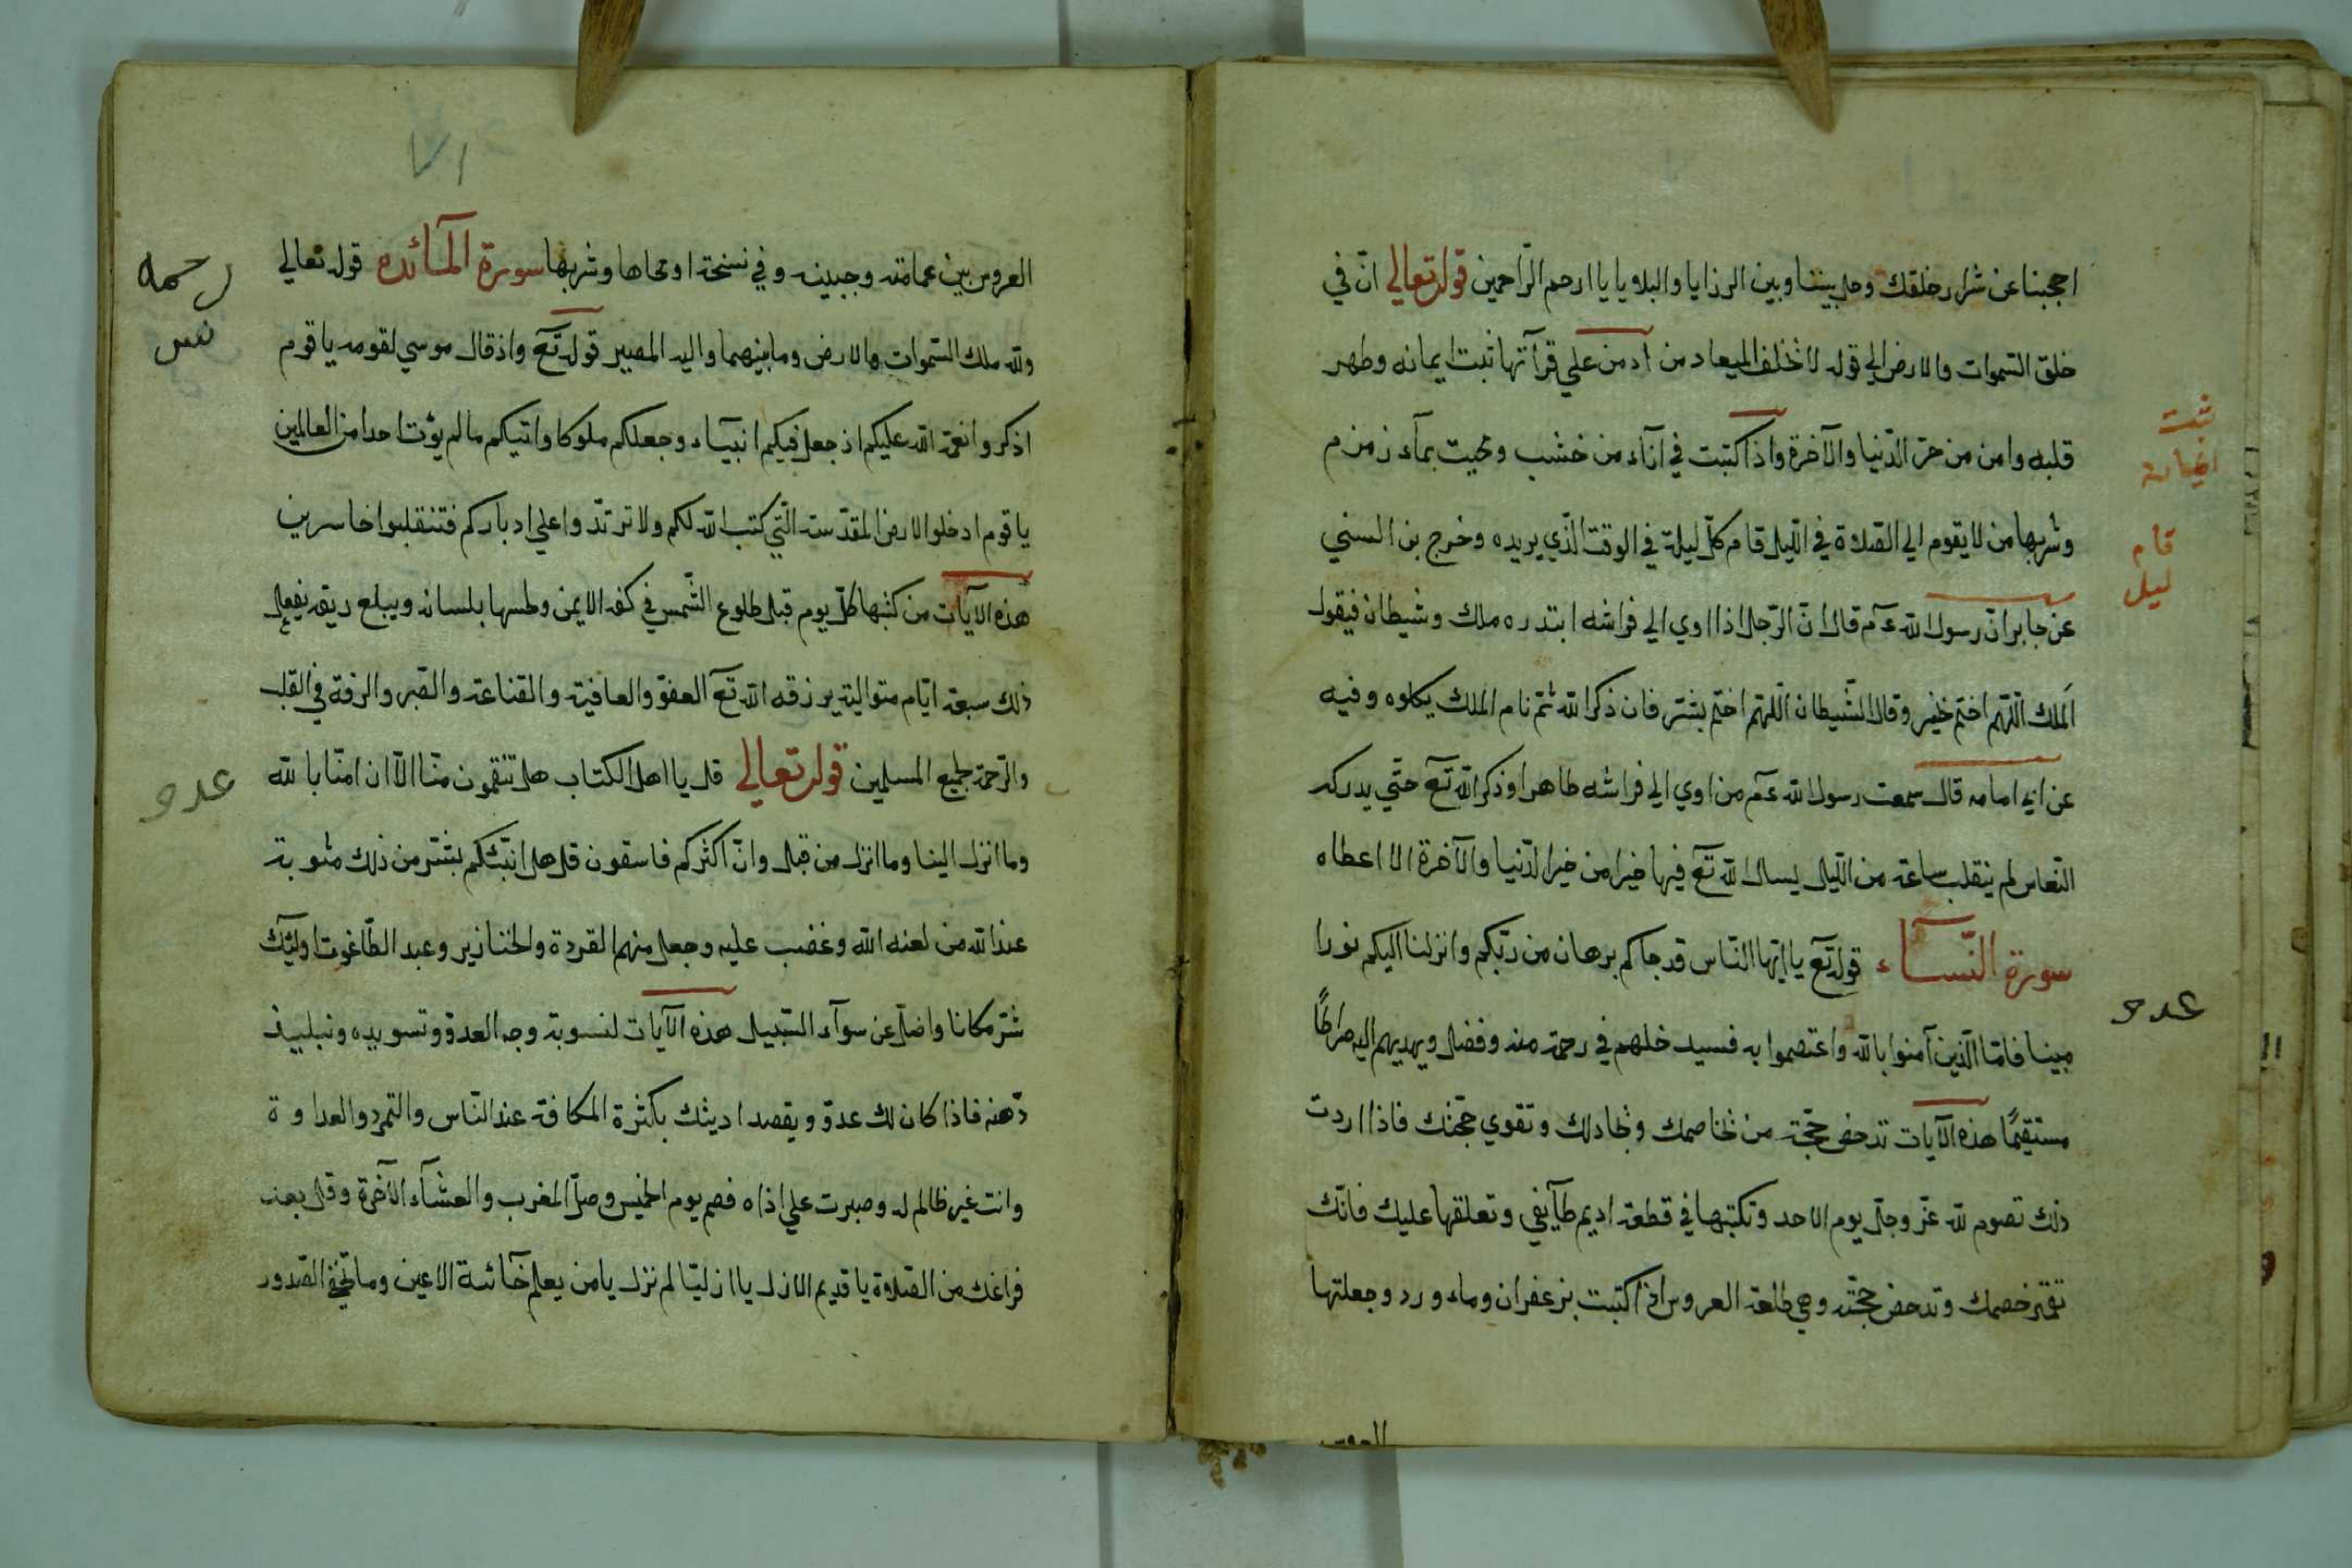 احجبنا عن شرار خلقك وحل بيننا وبين الرزايا والبلاويا يا ارحم الرّاحمين قوله تعالي انّ في
خلق السّموات والارض الي قوله لا تخلف الميعاد من ادمن علي قرآتها ثبت ايمانه وطهر
قلبه وامن من خزي الدّنيا والآخرة واذا كتبت في اناء من خشب ومحيت بمآء زمزم
وشربها من لا يقوم الي الصّلاة في اللّيل قام كلّ ليلة في الوقت الّذي يريده وخرج بن السني
عن جابر انّ رسول الله عم قال انّ الرّجل اذا اوي الي فراشه ابتدره ملك وشيطان فيقول
الملك اللّهم اختم بخير وقال الشّيطان اللّهم اختم بشر فان ذكر الله ثم نام الملك يكلوه وفيه
عن ابي امامه قال سمعت رسول الله عم من اوي الي فراشه طاهرا وذكر الله تع حتّي يدركه
النّعاس لم ينقلب ساعة من اللّيل يسال الله تع فيها خيرا من خير الدّنيا والآخرة الا اعطاه
سورة النّسآء قوله تع يا ايّها النّاس قد جاكم برهان من ربّكم وانزلنا اليكم نورا
مبينا فامّا الّذين آمنوا بالله واعتصموا به فسيدخلهم في رحمة منه وفضل ويهديهم اليه صراطًا
مستقيمًا هذه الآيات تدحض حجّة من تخاصمك وتجادلك وتقوي حجّتك فاذا اردت
ذلك تصوم لله عزّ وجلّ يوم الاحد وتكتبها في قطعة اديم طآيفي وتعلقها عليك فانّك
تقهر خصمك وتدحض حجّته وهي طلعة العروس اذا كتبت بزعفران وماء ورد وجعلتها
ثبت
ايمانه
قام
ليل
عدو
العروس بين عمامته وجبينه وفي نسخة او محاها وشربها سورة المآئده قوله تعالي
ولله ملك السّموات والارض وما بينهما واليه المصير قوله تع واذ قال موسي لقومه يا قوم
اذكروا نعمة الله عليكم اذ جعل فيكم انبيآء وجعلكم ملوكا واتيكم ما لم يؤت احدا من العالمين
يا قوم ادخلوا الارض المقدّسة الّتي كتب الله لكم ولا ترتدّوا علي ادباركم فتنقلبوا خاسرين
هذه الآيات من كتبها كلّ يوم قبل طلوع الشّمس في كفه الايمن وطسها بلسانه ويبلع ريقه يفعل
ذلك سبعة ايّام متوالية يرزقه الله تع العفو والعافية والقناعة والصّبر والرفة في القلب
والرّحمة لجميع المسلمين قوله تعالي قل يا اهل الكتاب هل تنقمون منّا الّا ان امنّا بالله
وما انزل الينا وما انزل من قبل وانّ اكثركم فاسقون قل هل انبّئكم بشر من ذلك مثوبة
عند الله من لعنه الله وغضب عليه وجعل منهم القردة والخنازير وعبد الطّاغوت اوليك
شرّ مكانا واضلّ عن سوآء السّبيل هذه الآيات لنسوبة وجه العدوّ وتسويده وتبليد
ذهنه فاذا كان لك عدوّ ويقصد اديتك بكثرة المكافة عند النّاس والتمرد والعداوة
وانت غير ظالم له وصبرت علي اذاه فصم يوم الخميس وصلّ المغرب والعشآء الآخرة وقل بعد
فراغك من الصّلاة يا قديم الازل يا ازليّا لم نزل يا من يعلم خآئنة الاعين وما تخفي الصّدور
رحمه
نس
عدو
٧١